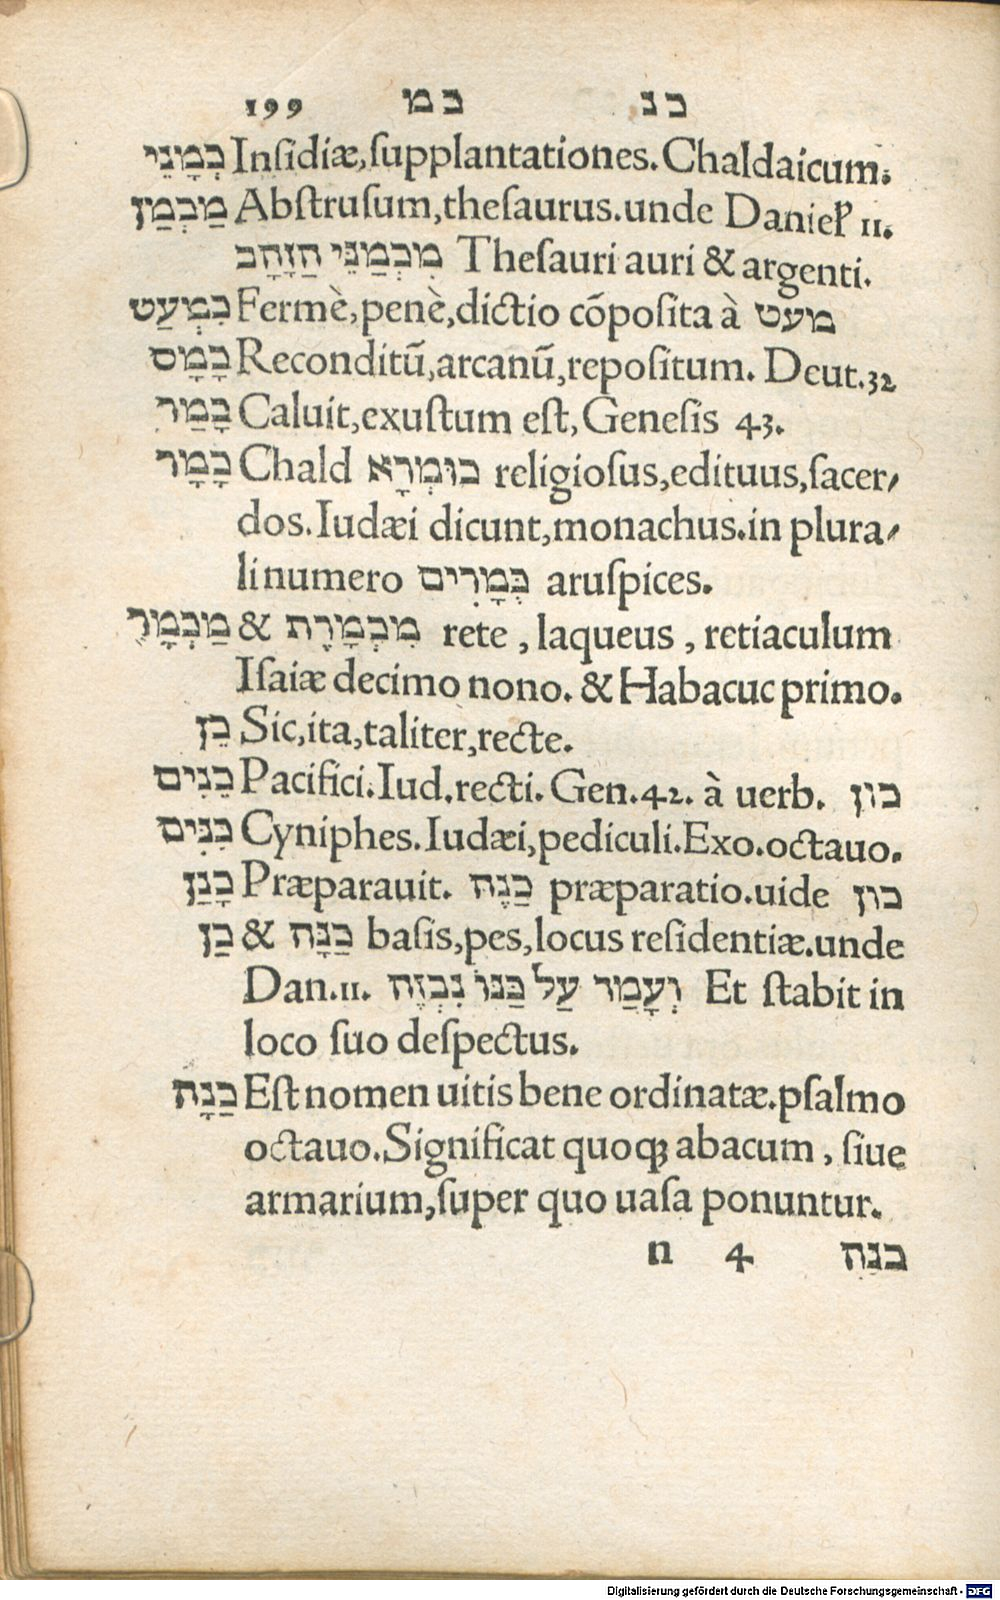 199 כמ כנ
כְּמָנֵי Inſidiæ,ſupplantationes.Chaldaicum.
מַכְמַן Abſtruſum,theſaurus.unde Danieł 11.
מִכְמַנֵּי הַזָּהָב Theſauri auri & argenti.
כִּמְעַט Fermè,penè,dictio cōpoſita à מעט
כָּמָס Reconditū,arcanū,repoſitum. Deut.32
כָּמַר Caluit,exuſtum eſt,Geneſis 43.
כָּמָר Chald כּוּמְרָא religioſus,edituus,ſacer⸗
dos.Iudæi dicunt,monachus.in plura⸗
li numero כְּמָרִים aruſpices.
מַכְמָר & מִכְמָרֶת rete , laqueus , retiaculum
Iſaiæ decimo nono. & Habacuc primo.
כֵּן Sic,ita,taliter,recte.
כֵּנִים Pacifici.Iud.recti. Gen.42. à uerb. כון
כִּנִּים Cyniphes.Iudæi,pediculi.Exo.octauo.
כָּנַן Præparauit. כַּנֶּה præparatio.uide כון
כַּן & כַּנָּה baſis,pes,locus reſidentiæ.unde
Dan.11. וְעָמַד עַל כַּנּוֹ נִבְזֶה Et ſtabit in
loco ſuo deſpectus.
כַּנָּה Eſt nomen uitis bene ordinatæ.pſalmo
octauo.Significat quoqꝫ abacum , ſiue
armarium,ſuper quo uaſa ponuntur.
n 4 כנה
Digitalisierung gefördert durch die Deutsche Forschungsgemeinschaft - DFG